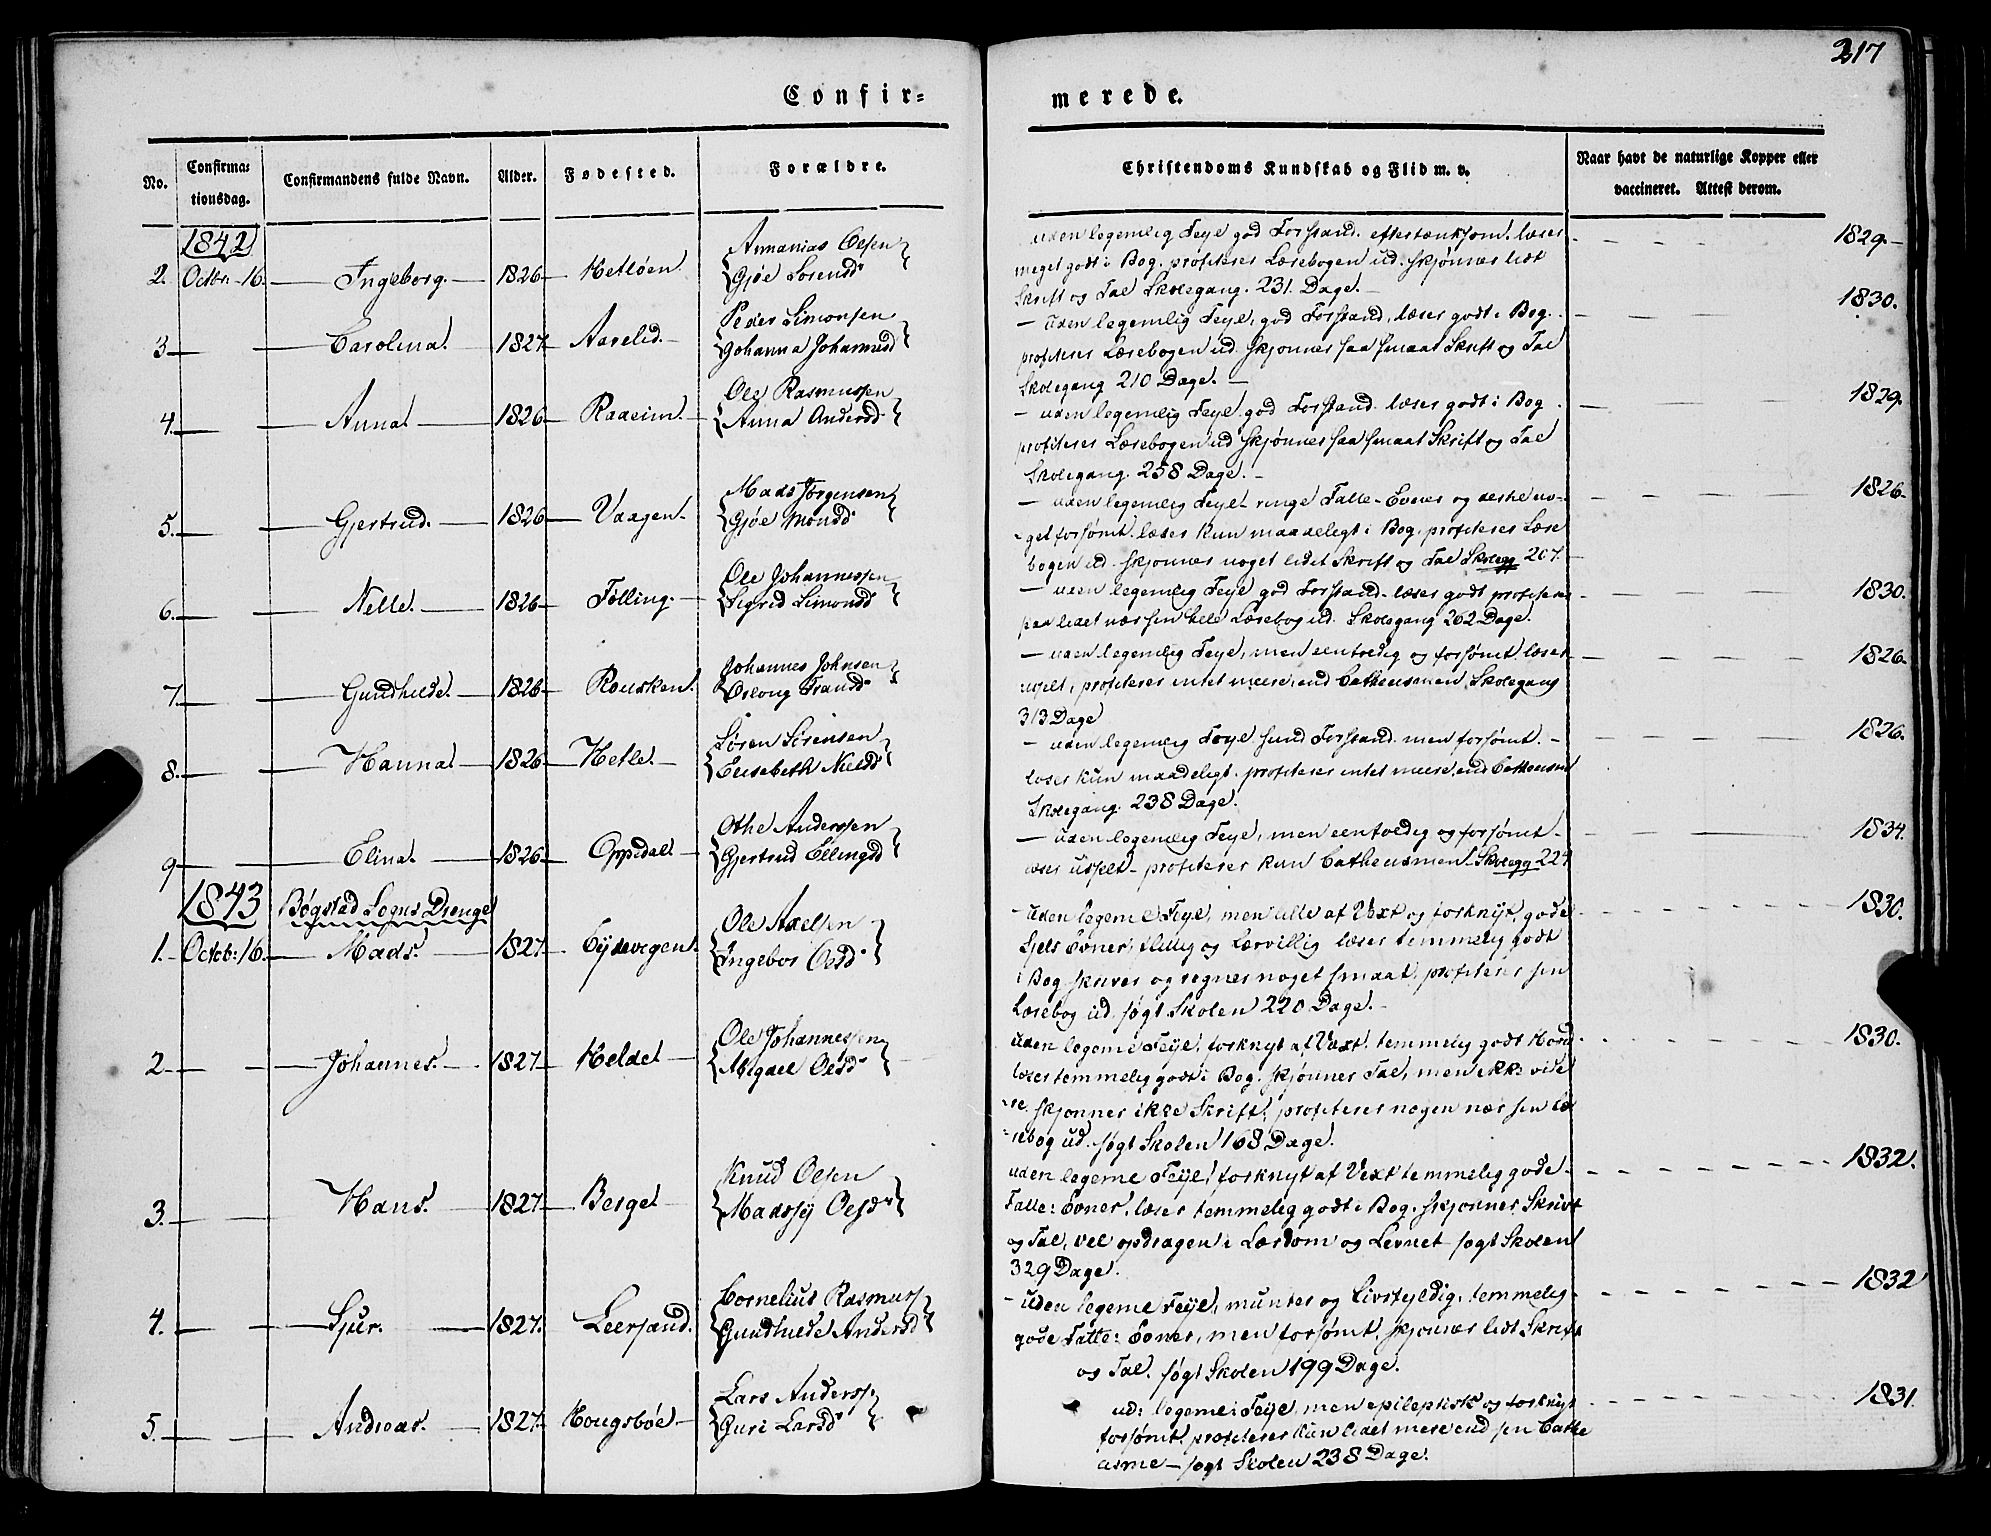 217
Confir-
merede.
No.
Confirma-
tionsdag.
Confirmandens fulde Navn.
Alder.
Fødested.
Forældre.
Christendoms Kundskab og Flid m. v.
Naar havt de naturlige Kopper eller
vaccineret. Attest derom.
1842
2. Octbr. 16. Ingeborg. 1826 Hetløen
Annanias Olsen
Gjøe Sørensd
uden legemlig Feyl god Forstand. eftertænksom. læser
meget godt i Bog. profiterer Læsebogen ud. skjønner lidt
Skrift og Tal Skolegang. 231. Dage.
1829.
3 Carolina. 1827 Aarelid.
Peder Simonsen
Johanna Johannesd
uden legemlig Feyl, god Forstand, læser godt i Bog.
profiterer Læsebogen ud. skjønner saa smaat Skrift og Tal
Skolegang 210 Dage.
1830.
4. Anna 1826 Raaeim.
Ole Rasmussen
Anna Andersd
uden legemlig Feyl. god Forstand. læser godt i Bog
profiterer Læsebogen ud skjønner saa smaat Skrift og Tal
Skolegang. 258 Dage.
1829.
5. Gjertrud. 1826 Vaagen.
Mads Jørgensen
Gjøe Monsd
uden legemlig Feyl ringe Fatte-Evner og derhe no-
get forsømt. læser kun maadeligt i Bog. profiterer Læse
bogen ud. skjønner noget lidet Skrift og Tal Skoleg 207.
1826.
6. Nille. 1826 Tølling.
Ole Johannessen
Sigrid Simonsd
uden legemlig Feyl god Forstand. læser godt profiterer
paa lidet nær sin hele Læsebog ud. Skolegang 262 Dage.
1830.
7. Gundhilde. 1826 Rousken.
Johannes Johnsen
Oslong Fransd
uden legemlig Feyl, men eenfoldig og forsømt. læser
uselt, profiterer intet meere, end Cathecismen Skolegang
313 Dage
1826.
8. Hanna 1826 Hetle.
Søren Sørensen
Elisabeth Nielsd
uden legemlig Feyl sund Forstand men forsømt.
læser kun maadeligt. profiterer intet meere, end Cathecismen
Skolegang: 238 Dage.
1826.
9 Elina. 1826 Oppedal
Othe Anderssen
Gjertrud Ellingsd
uden legemlig Feyl, men eenfoldig og forsømt
læser uselt profiterer kun Cathecismen Skolegg 224
1834.
1843 Bøgstad Sogns Drenge
1. Octob: 16. Mads. 1827 Eydevegen.
Ole Axelsen
Ingebor Olsd
uden legeme Feyl, men lille af Vext og forknyt, gode
Sjels Evner, flitig og Lærvillig læser temmelig godt
i Bog skriver og regner noget smaat. profiterer sin
Læsebog ud. søgt Skolen 220 Dage.
1830.
2 Johannes. 1827 Heldal
Ole Johannessen
Abigael Olsd
uden legeme Feyl, forknyt af Vext, temmelig godt
læser temmelig godt i Bog. skjønner Tal, men ikke vide
re. skjønner ikke Skrift, profiterer nogen nær sin Læ
sebog ud. søgt Skolen 168 Dage.
1830.
3. Hans. 1827 Berge
Knud Olsen
Madssy Olsd
uden legeme Feyl, forknyt af Vext temmelig gode
Fatte: Evner, læser temmelig godt i Bog, skjønner Skrivt
og Tal, vel opdragen i Lærdom og Levnet søgt Skolen
329 Dage.
1832.
4. Sjur. 1827. Leersand.
Cornelius Rasmuss
Gundhilde Andersd
uden legeme Feyl, munter og Livsfyldig, temmelig
gode Fatte: Evner, men forsømt, skjønner lidt Skrift
og Tal. søgt Skolen 199 Dage.
1832
5. Andreas. 1827. Hougsbøe
Lars Anderss
Guri Larsd
ud: legeme: Feyl, men epileptisk og forknyt
forsømt. profiterer kun lidet mere end sin Cathe
cisme søgt Skolen 238 Dage.
1831.